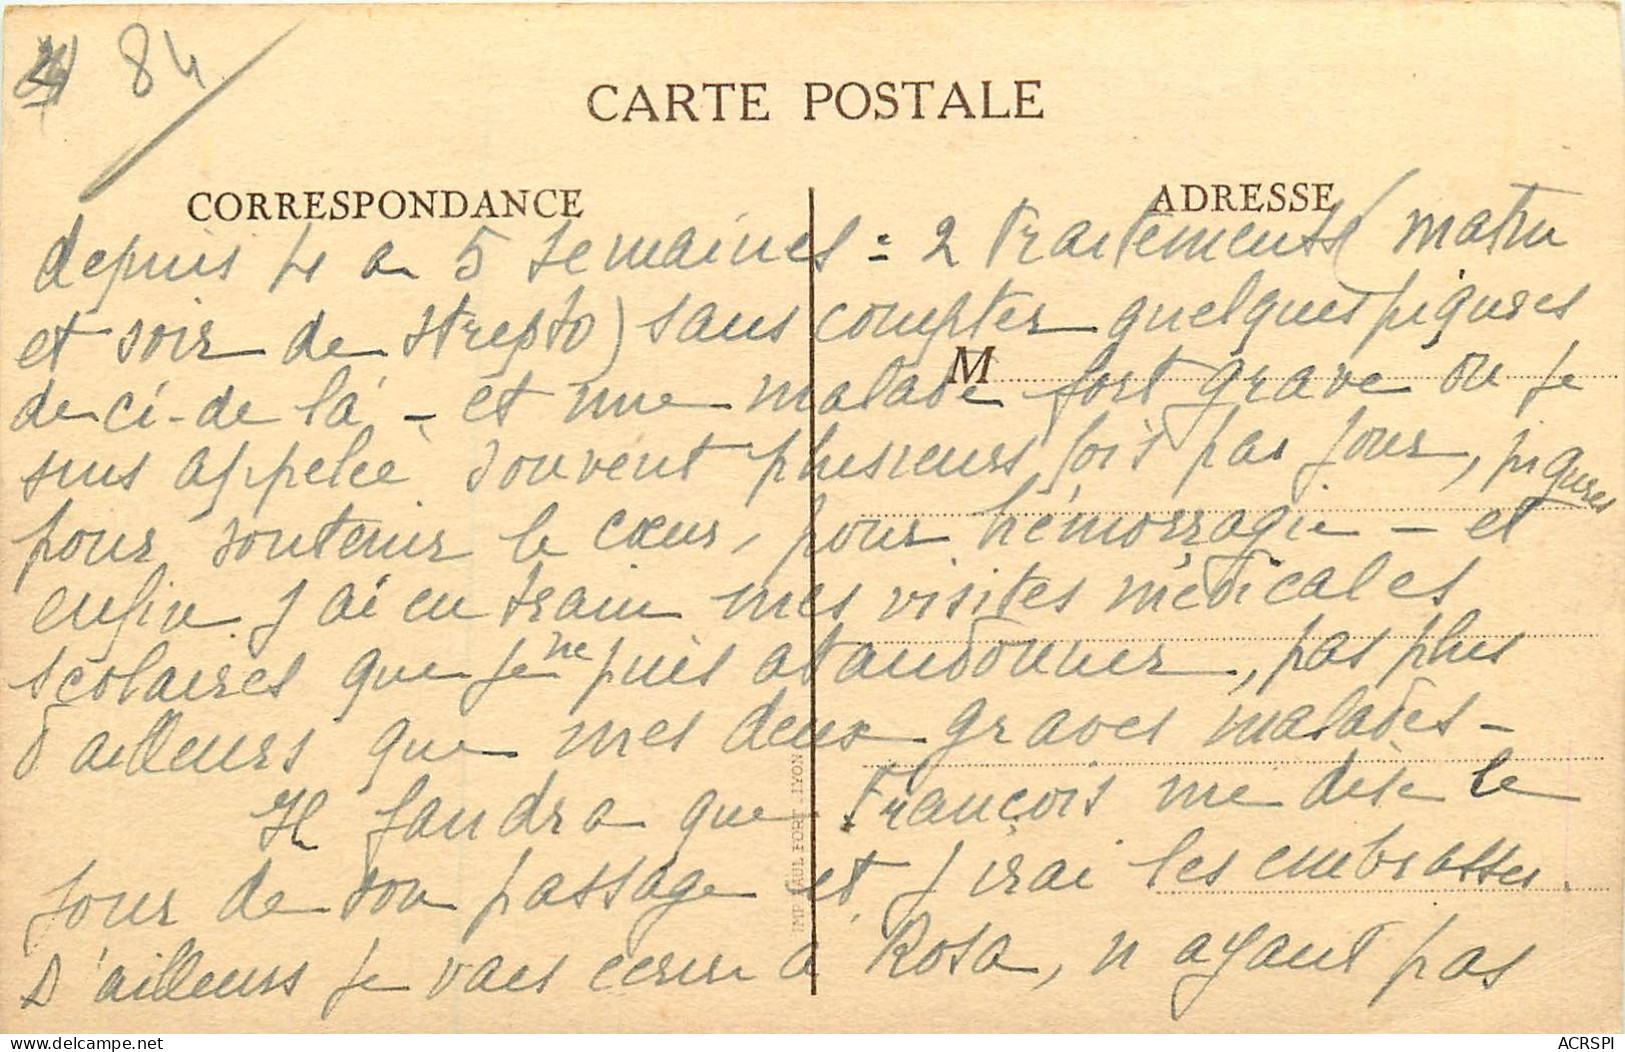 84
CARTE POSTALE
CORRESPONDANCE
ADRESSE
depuis 4 a 5 semaines = 2 traitements (matin
et soir de strepto) sans compter quelques piqures
de ci-de là - et une malade fort grave ou je
M
suis appelée souvent plusieurs fois par jour, piqures
pour soutenir le cœur, pour hémorragie - et
enfin j'ai en train mes visites médicales
scolaires que je ne puis abandonner, pas plus
d'ailleurs que mes deux graves malades -
Il faudra que François me dise le
jour de son passage et j'irai les embrasser.
D'ailleurs je vais ecrire a Rosa, n'ayant pas
IMP. PAUL FORT. LYON
ACRSPI